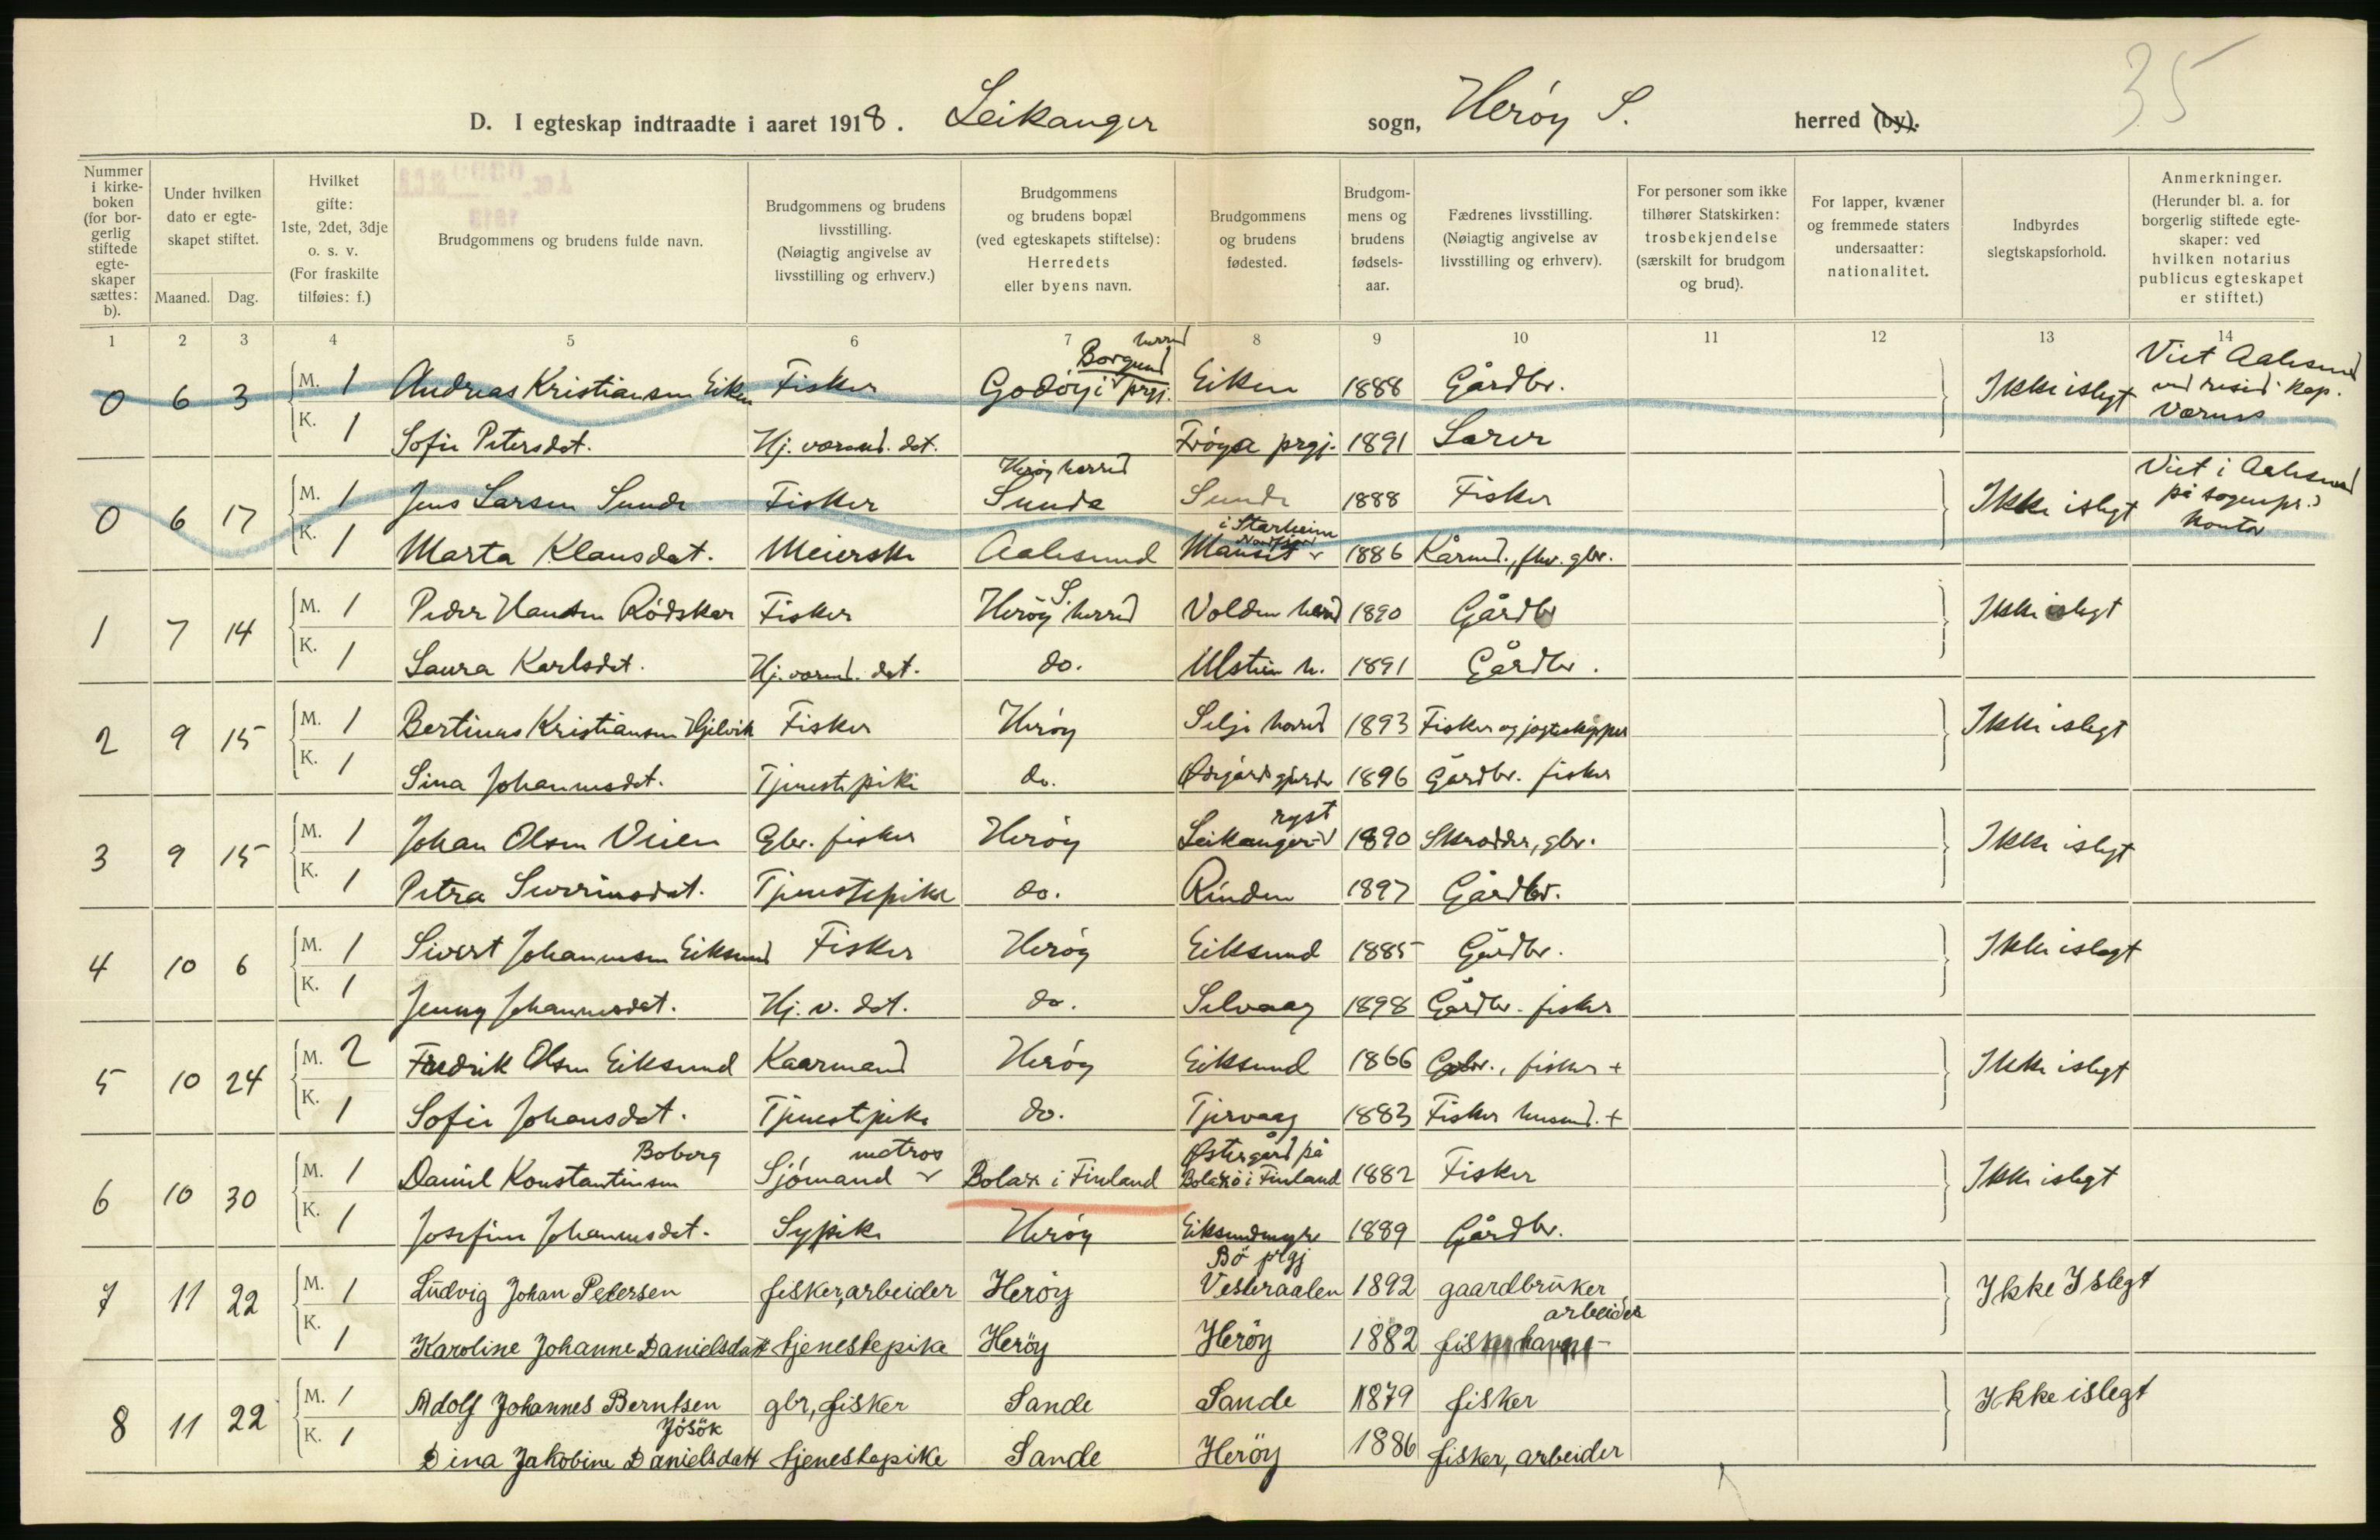 35
D. I egteskap indtraadte i aaret 1918. Leikanger sogn, Herøy S. herred (by).
Nummer i kirkeboken (for borgerlig stiftede egteskaper sættes: b).
Under hvilken dato er egteskapet stiftet.
Maaned. Dag.
Hvilket gifte: 1ste, 2det, 3dje o. s. v. (For fraskilte tilføies: f.)
Brudgommens og brudens fulde navn.
Brudgommens og brudens livsstilling. (Nøiagtig angivelse av livsstilling og erhverv.)
Brudgommens og brudens bopæl (ved egteskapets stiftelse): Herredets eller byens navn.
Brudgommens og brudens fødested.
Brudgommens og brudens fødselsaar.
Fædrenes livsstilling. (Nøiagtig angivelse av livsstilling og erhverv).
For personer som ikke tilhører Statskirken: trosbekjendelse (særskilt for brudgom og brud).
For lapper, kvæner og fremmede staters undersaatter: nationalitet.
Indbyrdes slegtskapsforhold.
Anmerkninger. (Herunder bl. a. for borgerlig stiftede egteskaper: ved hvilken notarius publicus egteskapet er stiftet.)
1 2 3 4 5 6 7 8 9 10 11 12 13 14
0 6 3 M. 1 Andreas Kristiansen Eiken Fisker Godøy i Borgund herred prgj. Eiken 1888 Gårdbr. Ikke i slegt Viet Aalesund ved resid. kap.
K. 1 Sofie Petersdat. Hj. værend. dat. Frøya prgj. 1891 Lærer
0 6 17 M. 1 Jens Larsen Sunde Fisker Herøy herred Sunde Sunde 1888 Fisker Ikke i slegt Viet i Aalesund på sognepr.s kontor
K. 1 Marta Klausdat. Meierske Aalesund i Starheim Nordfjord 1886 Kårmd., fhv. gbr.
1 7 14 M. 1 Peder Hansen Rødskar Fisker Herøy S. herred Volden herred 1890 Gårdb Ikke i slegt
K. 1 Laura Karlsdat. Hj. værend. dat. do. Ulstein h. 1891 Gårdbr.
2 9 15 M. 1 Bertinus Kristiansen Hjelvik Fisker Herøy Selje herred 1893 Fisker og jagteskipper Ikke i slegt
K. 1 Sina Johannesdat. Tjenestepike do. 1896 Gårdbr. fisker
3 9 15 M. 1 Johan Olsen Veien Gbr. fisker Herøy Leikanger- 1890 Skrædder, gbr. Ikke i slegt
K. 1 Petra Severinsdat. Tjenestepike do. Rinden 1897 Gårdbr.
4 10 6 M. 1 Sivert Johannesen Eiksund Fisker Herøy Eiksund 1885 Gårdbr. Ikke i slegt
K. 1 Jenny Johannesdat. Hj. v. dat. do. Selvaag 1898 Gårdbr. fisker
5 10 24 M. 2 Fredrik Olsen Eiksund Kaarmand Herøy Eiksund 1866 Gbr., fisker + Ikke i slegt
K. 1 Sofie Johansdat. Tjenestepike do. Tjervaag 1883 Fisker husmd. +
6 10 30 M. 1 Daniel Konstantinsen Boborg Sjømand matros Bolax i Finland Østergård på Bolaxö i Finland 1882 Fisker Ikke i slegt
K. 1 Josefine Johannesdat. Sypike Herøy Eiksundmyr 1889 Gårdbr.
7 11 22 M. 1 Ludvig Johan Pedersen fisker, arbeider Herøy Bö prgj Vesteraalen 1892 gaardbruker Ikke I slegt
K. 1 Karoline Johanne Danielsdatt tjenestepike Herøy Herøy 1882 fisker arbeider
8 11 22 M. 1 Adolf Johannes Berntsen gbr, fisker Sande Sande 1879 fisker Ikke i slegt
K. 1 Dina Jakobine Danielsdatt Jösök tjenestepike Sande Herøy 1886 fisker, arbeider